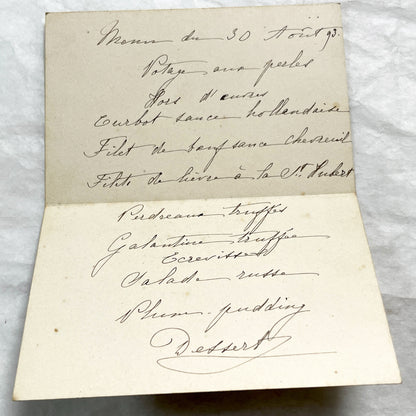 Menu du 30 Août 93.
Potage aux perles
Hors d'œuvres
Turbot sauce hollandaise
Filet de bœuf sauce chevreuil
Filets de lièvre à la St Hubert
Perdreaux truffés
Galantine truffée
Ecrevisses
Salade russe
Plum-pudding
Dessert